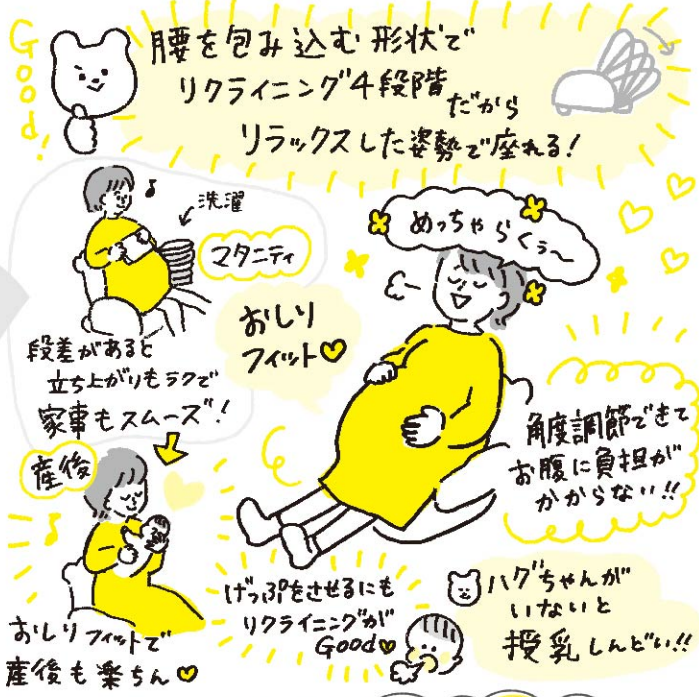 Good!
腰を包み込む形状で
リクライニング4段階
だから
リラックスした姿勢で座れる!
洗濯
マタニティ
めっちゃらくぅ〜
おしり
フィット♡
段差があると
立ち上がりもラクで
家事もスムーズ!
角度調節できて
お腹に負担が
かからない!!
産後
おしりフィットで
産後も楽ちん♡
げっぷをさせるにも
リクライニングが
Good♡
ハグちゃんが
いないと
授乳しんどい!!